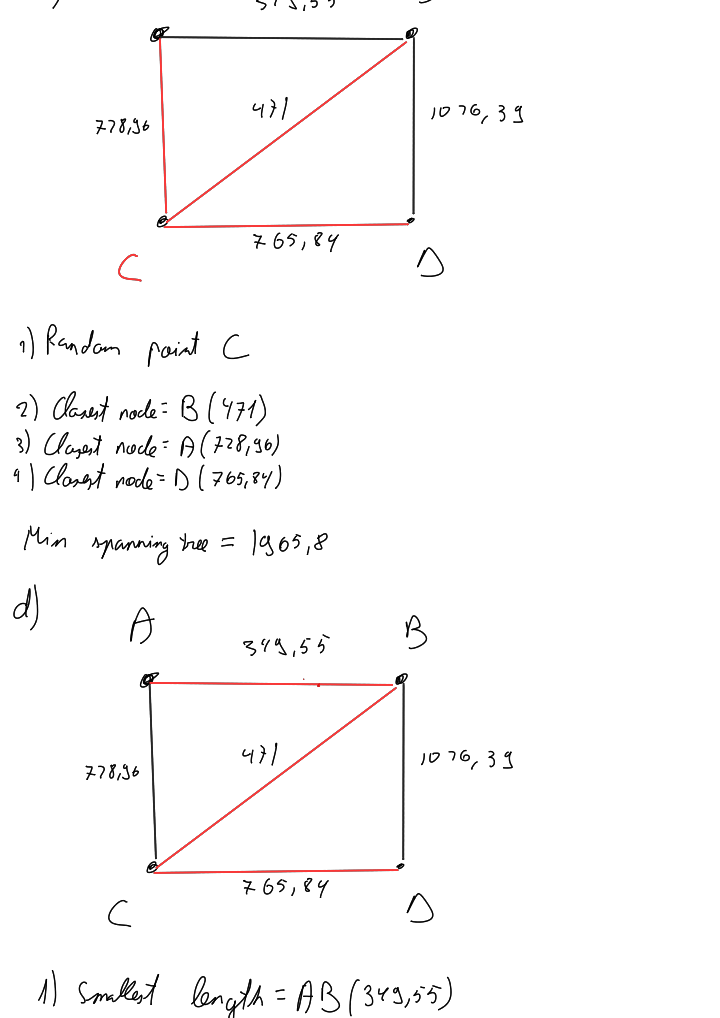 778,96
471
1076,39
765,84
C
D
1) Random point C
2) Closest node = B (471)
3) Closest node = A (728,96)
4) Closest node = D (765,84)
Min spanning tree = 1965,8
d)
A
B
349,55
778,96
471
1076,39
765,84
C
D
1) Smallest length = AB (349,55)